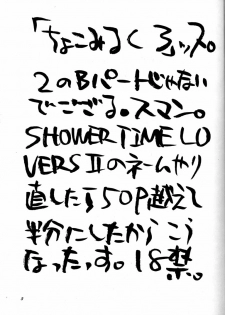 「ちょこみるくろッス。
2のBパートじゃない
でござる。スマン。
SHOWER TIME LO
VERS Ⅱのネームやり
直したら50P越えて
半分にしたからこう
なったっす。18禁。